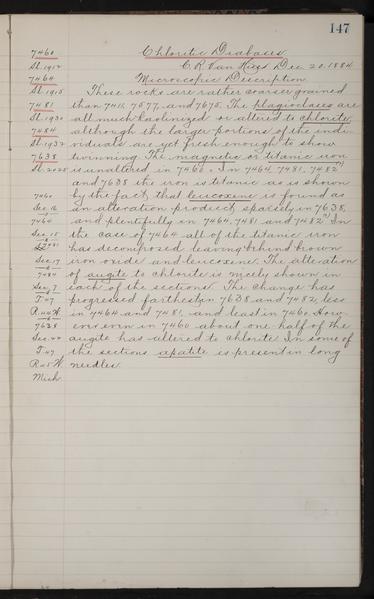 147
7460 Chloritic Diabases.
Sl. 1914 C. R. Van Hise Dec. 20. 1884.
7464 Microscopic Description
Sl. 1915 These rocks are rather coarser grained
7481 than 7411, 7577, and 7675. The plagioclases are
Sl. 1930 all much kaolinized or altered to chlorite,
7484 although the larger portions of the indi-
Sl. 1932 viduals are yet fresh enough to show
7638 twinning. The magnetic or titanic iron
Sl. 2025 is unaltered in 7460. In 7464, 7481, 7482
and 7638 the iron is titanic as is shown
7460 by the fact that leucoxene is found as
Sec. 16 an alteration product, sparsely in 7638,
7464 and plentifully in 7464, 7481 and 7482. In
Sec. 15 the case of 7464 all of the titanic iron
7481 has decomposed leaving behind brown
Sec. 17 iron oxide and leucoxene. The alteration
7484 of augite to chlorite is nicely shown in
Sec. 7 each of the sections. The change has
T. 47 progressed farthest in 7638 and 7482, less
R. 46 W. in 7464 and 7481, and least in 7460. How-
7638 ever even in 7460 about one half of the
Sec. augite has altered to chlorite. In some of
T. 47 the sections apatite is present in long
R. 45 W. needles.
Mich.